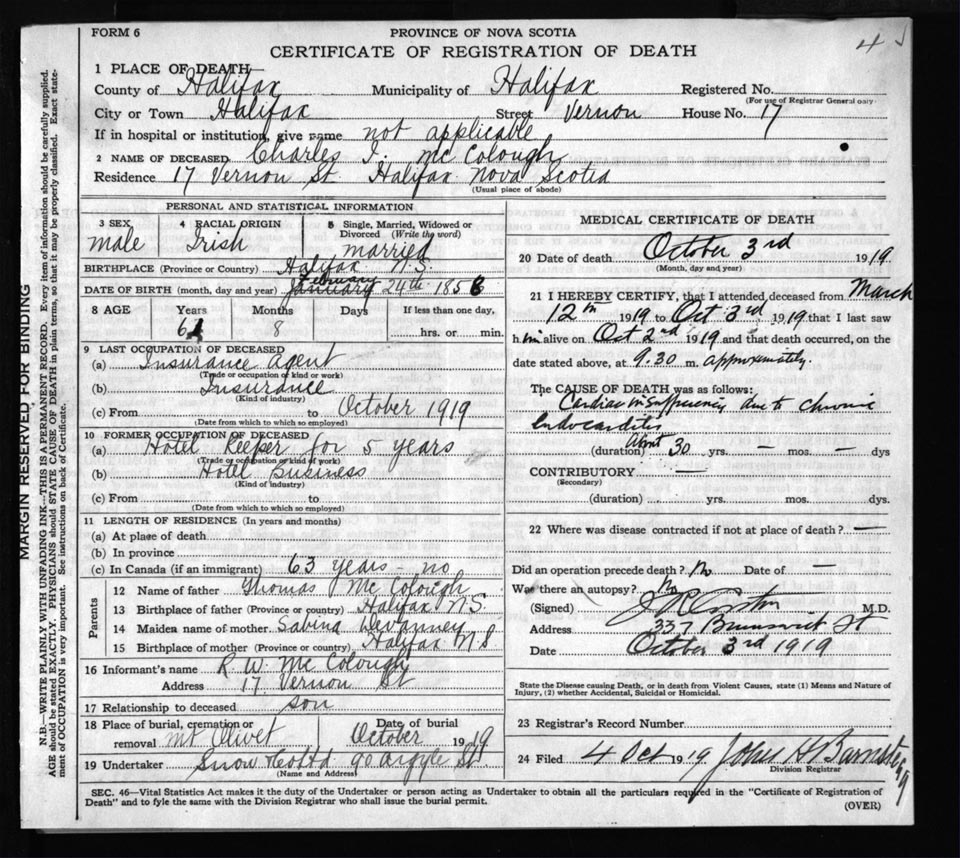 FORM 6
PROVINCE OF NOVA SCOTIA
CERTIFICATE OF REGISTRATION OF DEATH
1 PLACE OF DEATH
County of Halifax Municipality of Halifax Registered No.
(For use of Registrar General only
City or Town Halifax Street Vernon House No. 17
If in hospital or institution, give name not applicable
2 NAME OF DECEASED Charles I. McColough
Residence 17 Vernon St. Halifax Nova Scotia
(Usual place of abode)
PERSONAL AND STATISTICAL INFORMATION
3 SEX male 4 RACIAL ORIGIN Irish 5 Single, Married, Widowed or Divorced (Write the word) married
BIRTHPLACE (Province or Country) Halifax N.S.
DATE OF BIRTH (month, day and year) January February 24th 185
8 AGE Years Months 8 Days If less than one day, hrs. or min.
9 LAST OCCUPATION OF DECEASED
(a) Insurance Agent
(Trade or occupation or kind or work)
(b) Insurance
(Kind of industry)
(c) From to October 1919
(Date from which to which so employed)
10 FORMER OCCUPATION OF DECEASED
(a) Hotel Keeper for 5 years
(Trade or occupation or kind of work)
(b) Hotel Business
(Kind of industry)
(c) From to
(Date from which to which so employed)
11 LENGTH OF RESIDENCE (In years and months)
(a) At place of death
(b) In province
(c) In Canada (if an immigrant) 63 years - no
Parents
12 Name of father Thomas McColough
13 Birthplace of father (Province or country) Halifax N.S.
14 Maiden name of mother Sabina
15 Birthplace of mother (Province or country) Halifax N.S
16 Informant's name R. W. McColough
Address 17 Vernon St
17 Relationship to deceased son
18 Place of burial, cremation or removal Mt Olivet Date of burial October 1919
19 Undertaker Snow & Co Ltd 90 Argyle St
(Name and Address)
MEDICAL CERTIFICATE OF DEATH
20 Date of death October 3rd 1919.
(Month, day and year)
21 I HEREBY CERTIFY, that I attended deceased from March
12th 1919 to Oct 3rd 1919 that I last saw
him alive on Oct 2nd 1919 and that death occurred, on the
date stated above, at 9.30 m. approximately.
The CAUSE OF DEATH was as follows:
Cardiac insufficiency due to chronic
Endocarditis
(duration) About 30 yrs. — mos. — dys
CONTRIBUTORY —
(Secondary)
(duration) yrs. mos. dys.
22 Where was disease contracted if not at place of death? —
Did an operation precede death? No Date of —
Was there an autopsy? No
(Signed) M.D.
Address 337 Brunswick St
Date October 3rd 1919
State the Disease causing Death, or in death from Violent Causes, state (1) Means and Nature of
Injury, (2) whether Accidental, Suicidal or Homicidal.
23 Registrar's Record Number
24 Filed 4 Oct 1919.
Division Registrar
SEC. 46—Vital Statistics Act makes it the duty of the Undertaker or person acting as Undertaker to obtain all the particulars required in the "Certificate of Registration of
Death" and to fyle the same with the Division Registrar who shall issue the burial permit.
(OVER)
MARGIN RESERVED FOR BINDING
N.B.—WRITE PLAINLY WITH UNFADING INK—THIS IS A PERMANENT RECORD. Every item of information should be carefully supplied.
AGE should be stated EXACTLY. PHYSICIANS should STATE CAUSE OF DEATH in plain terms, so that it may be properly classified. Exact state-
ment of OCCUPATION is very important. See instructions on back of Certificate.